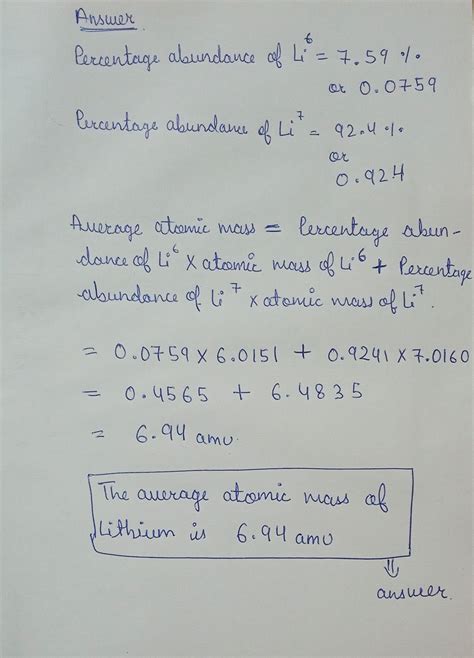 Answer
Percentage abundance of Li⁶ = 7.59 %
or 0.0759
Percentage abundance of Li⁷ = 92.4%
or
0.924
Average atomic mass = Percentage abun-
dance of Li⁶ × atomic mass of Li⁶ + Percentage
abundance of Li⁷ × atomic mass of Li⁷.
= 0.0759 × 6.0151 + 0.9241 × 7.0160
= 0.4565 + 6.4835
= 6.94 amu
The average atomic mass of
Lithium is 6.94 amu
answer.